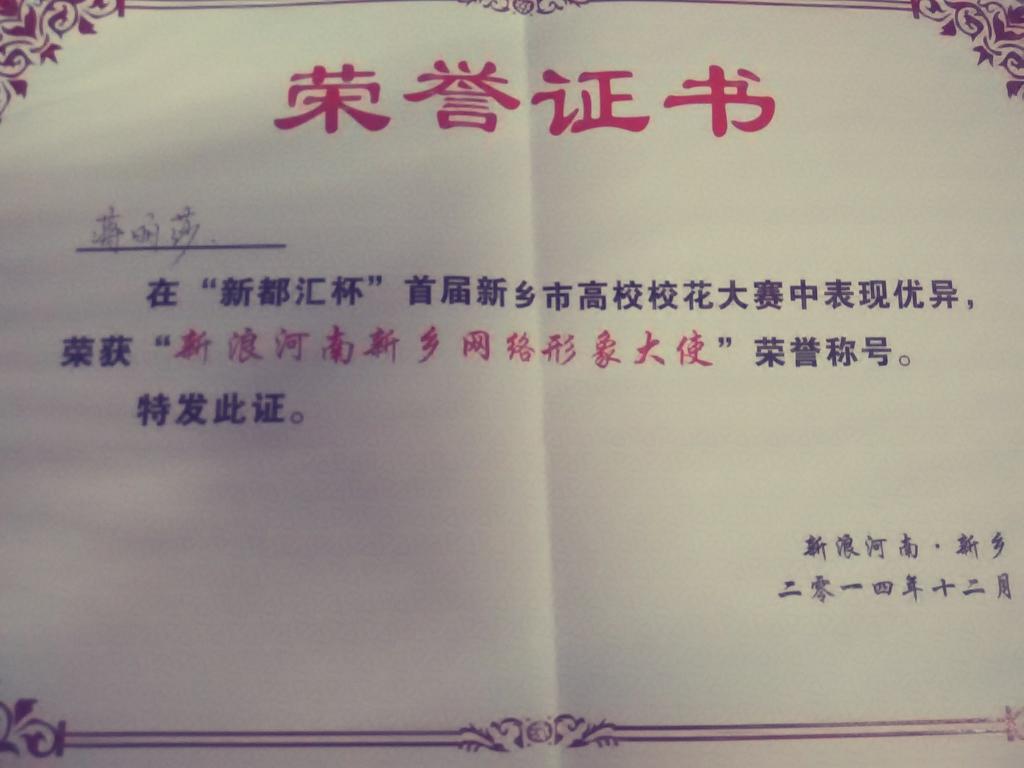 荣誉证书
蒋丽莎
在“新都汇杯”首届新乡市高校校花大赛中表现优异，
荣获“新浪河南新乡网络形象大使”荣誉称号。
特发此证。
新浪河南·新乡
二零一四年十二月